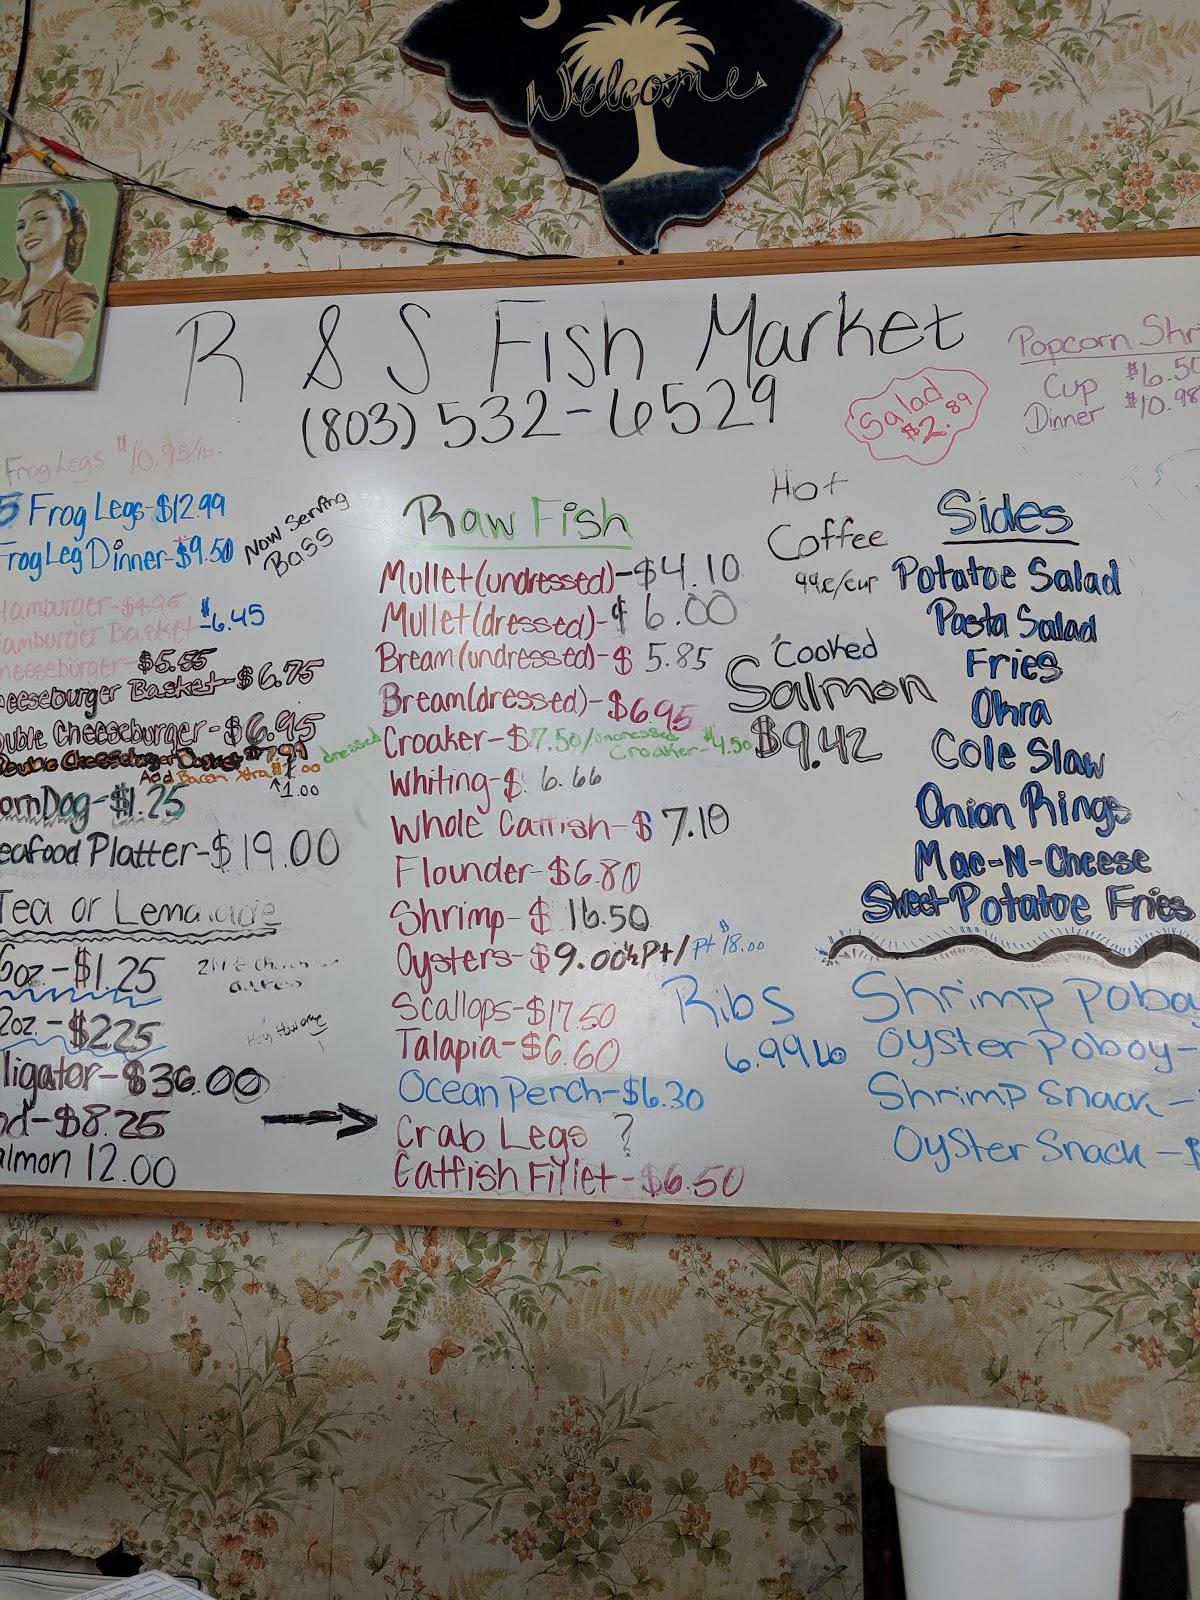 Welcome
R & S Fish Market
(803) 532-6529
Salad
$2.89
Popcorn Shr
Cup $6.50
Dinner $10.98
Frog Legs $10.95/lb.
5 Frog Legs-$12.99
Frog Leg Dinner-$9.50
Now Serving
Bass
Hamburger-$4.95
Hamburger Basket-$6.45
heeseburger-$5.55
heeseburger Basket-$6.75
ouble Cheeseburger-$6.95
Double Cheeseburger Basket $7.99
Add Bacon Xtra $1.00
↑1.00
ornDog-$1.25
eafood Platter-$19.00
Tea or Lemonade
6oz.-$1.25
2oz.-$2.25
lligator-$36.00
od-$8.25
almon 12.00
Raw Fish
Mullet(undressed)-$4.10
Mullet(dressed)-$6.00
Bream(undressed)-$5.85
Bream(dressed)-$6.95
dressed Croaker-$7.50/undressed Croaker-$4.50
Whiting-$6.66
Whole Catfish-$7.10
Flounder-$6.80
Shrimp-$16.50
Oysters-$9.00 ½Pt/Pt $18.00
Scallops-$17.50
Talapia-$6.60
Ocean Perch-$6.30
Crab Legs ?
Catfish Fillet-$6.50
Hot
Coffee
99¢/cup
Cooked
Salmon
$9.42
Ribs
6.99 Lb
Sides
Potatoe Salad
Pasta Salad
Fries
Okra
Cole Slaw
Onion Rings
Mac-N-Cheese
Sweet Potatoe Fries
Shrimp Poboy
Oyster Poboy-
Shrimp Snack-
Oyster Snack-$